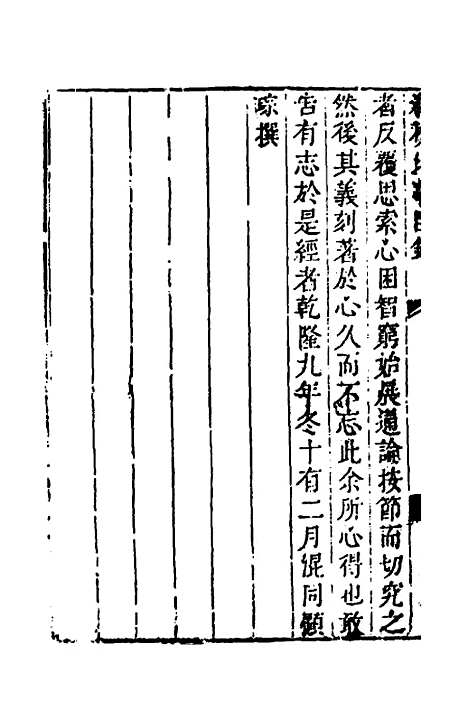 者反覆思索心困智窮始展通論按節而切究之
然後其義刻著於心久而不忘此余所心得也敢
告有志於是經者乾隆九年冬十有二月混同顧
琮撰